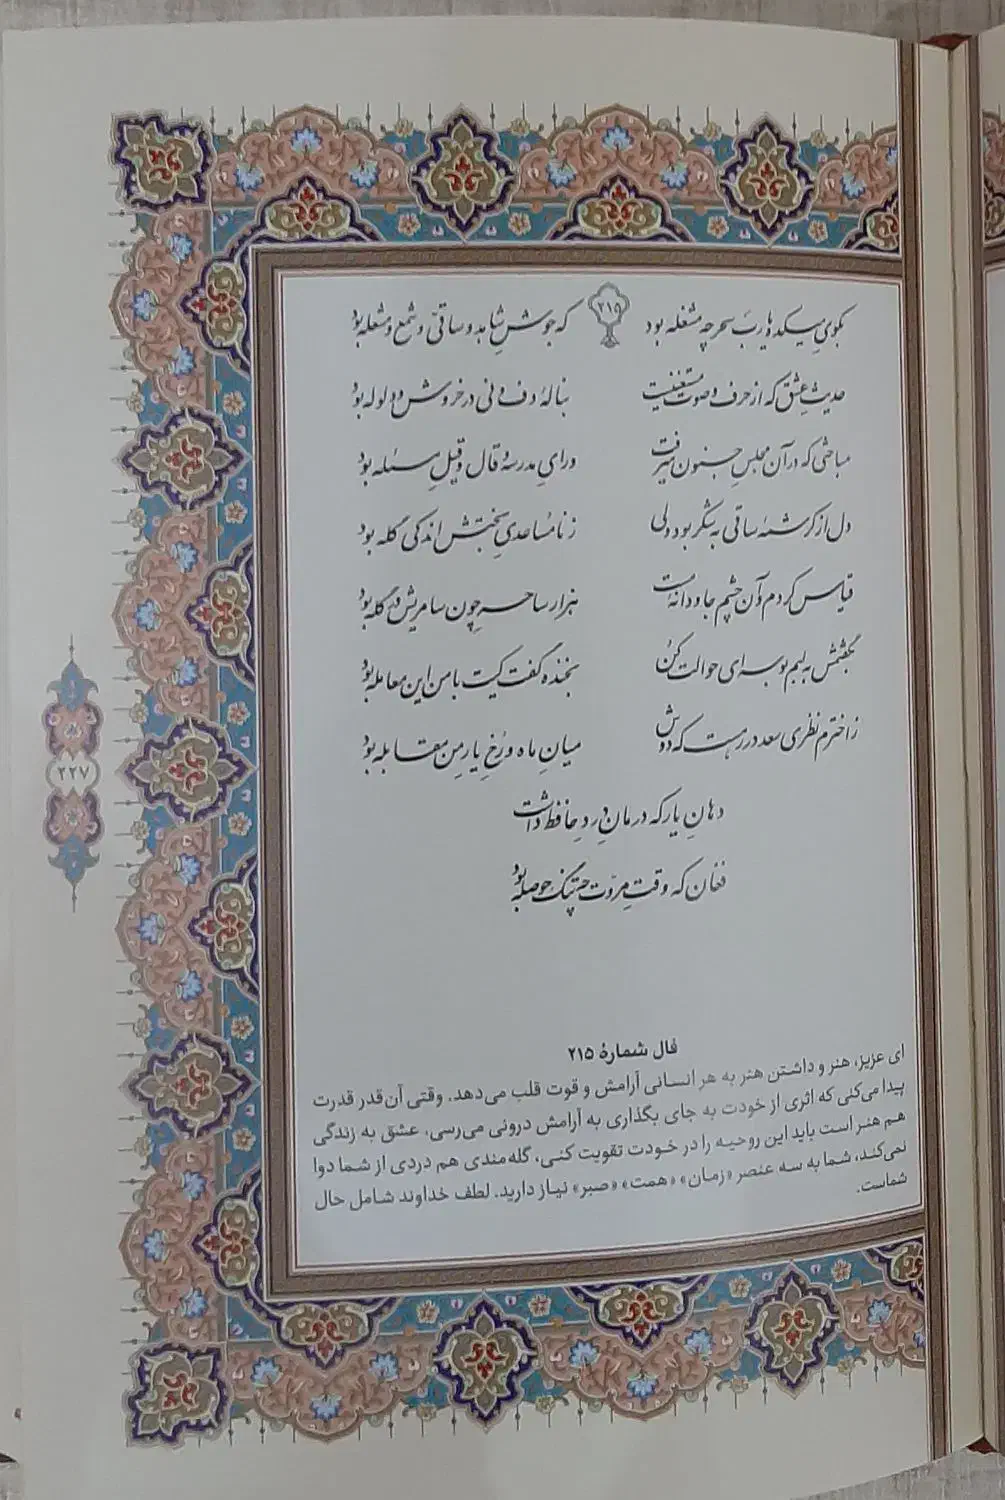 ۲۱۵
بکوی میکده یارب سحر چه مشغله بود که جوشِ شاهد و ساقی و شمع و مشعله بود
حدیثِ عشق که از حرف و صوت مستغنیست بنالهٔ دف و نی در خروش و ولوله بود
مباحثی که در آن مجلسِ جنون میرفت ورایِ مدرسه و قال و قیلِ مسئله بود
دل از کرشمهٔ ساقی به شکر بود ولی ز نامساعدیِ بختش اندکی گله بود
قیاس کردم و آن چشم جاودانهٔ مست هزار ساحرِ چون سامریش در گله بود
بگفتمش به لبم بوسه‌ای حوالت کن بخنده گفت کیت با من این معامله بود
ز اخترم نظری سعد در رهست که دوش میانِ ماه و رخِ یارِ من مقابله بود
دهانِ یار که درمانِ دردِ حافظ داشت
فغان که وقتِ مروّت چه تنگ حوصله بود
۲۲۷
فال شمارهٔ ۲۱۵
ای عزیز، هنر و داشتن هنر به هر انسانی آرامش و قوت قلب می‌دهد. وقتی آن قدر قدرت
پیدا می‌کنی که اثری از خودت به جای بگذاری به آرامش درونی می‌رسی. عشق به زندگی
هم هنر است باید این روحیه را در خودت تقویت کنی، گله‌مندی هم دردی از شما دوا
نمی‌کند، شما به سه عنصر «زمان» «همت» «صبر» نیاز دارید. لطف خداوند شامل حال
شماست.